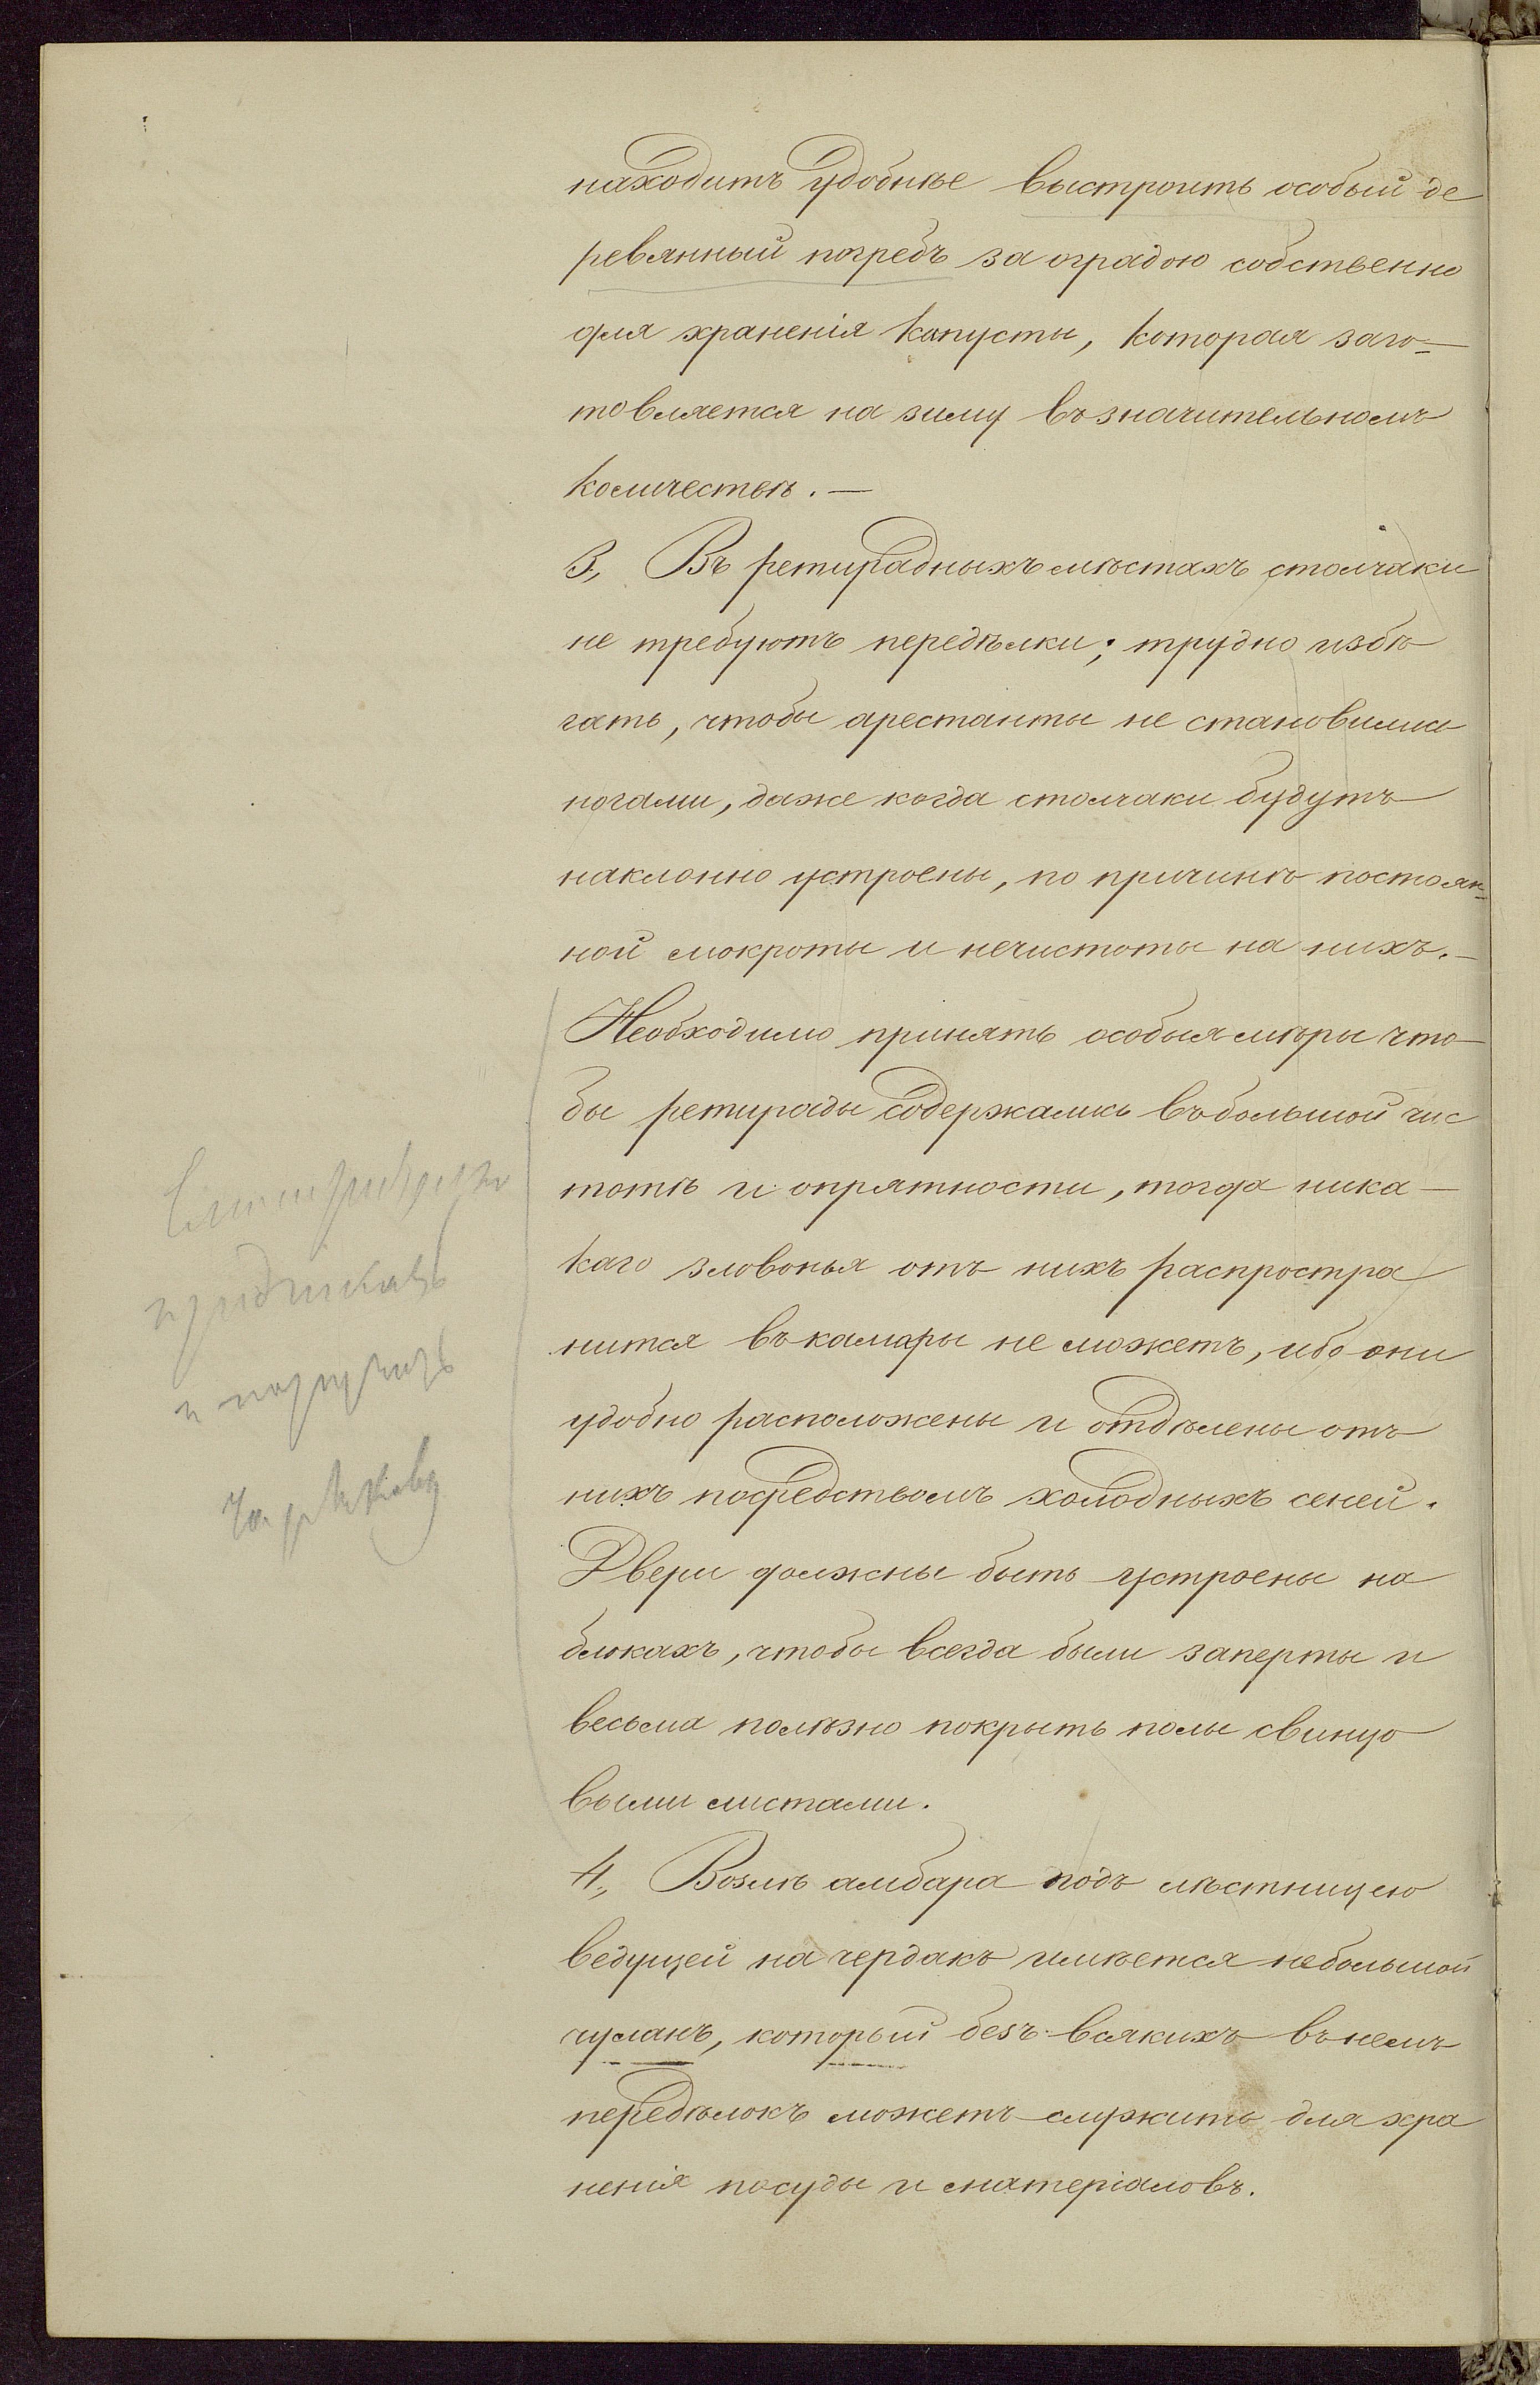 находитъ удобнѣе выстроить особый де
ревянный погребъ за оградою собственно
для храненія капусты, которая заго-
товляется на зиму въ значительномъ
количествѣ. —
3., Въ ретирадныхъ мѣстахъ стольчаки
не требуютъ передѣлки; трудно избѣ
гать, чтобы арестанты не становились
ногами, даже когда стольчаки будутъ
наклонно устроены, по причинѣ постоян-
ной мокроты и нечистоты на нихъ. —
Необходимо принять особыя мѣры что
бы ретирады содержались въ большой чис
тотѣ и опрятности, тогда ника-
каго зловонья отъ нихъ распростра
нится въ камары не можетъ, ибо они
удобно расположены и отдѣлены отъ
нихъ посредствомъ холодныхъ сеней.
Двери должны быть устроены на
блокахъ, чтобы всегда были заперты и
весьма полѣзно покрыть полы свинцо
выми листами.
4., Возлѣ амбара подъ лѣстницею
ведущей на чердакъ имѣется небольшой
чуланъ, который безъ всякихъ въ немъ
передѣлокъ можетъ служить для хра
ненія посуды и матеріаловъ.